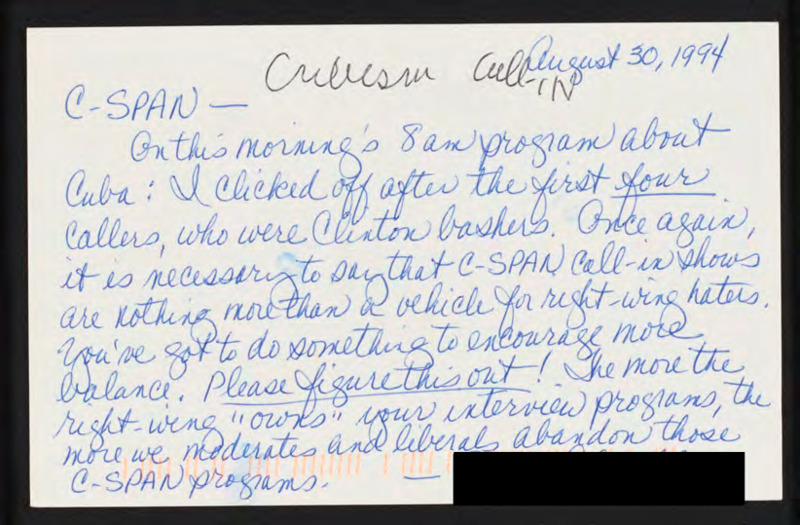 Criticism Call-IN
August 30, 1994
C-SPAN —
On this morning's 8 am program about
Cuba: I clicked off after the first four
callers, who were Clinton bashers. Once again,
it is necessary to say that C-SPAN call-in shows
are nothing more than a vehicle for right-wing haters.
You've got to do something to encourage more
balance. Please figure this out! The more the
right-wing "owns" your interview programs, the
more we moderates and liberals abandon those
C-SPAN programs. —